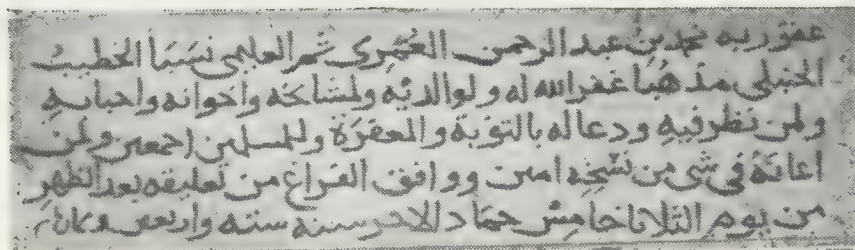 عفو ربه محمد بن عبد الرحمن العمري ثم العليمي نسبا الخطيب
الحنبلي مذهبا غفر الله له ولوالديه ولمشايخه واخوانه واحبابه
ولمن نظر فيه ودعا له بالتوبة والمغفرة ولمسلمين اجمعين ولمن
اعانه في شي من نسخه امين ووافق الفراغ من تعليقه بعد الظهر
من يوم الثلاثا خامس جماد الاخر سنة ستة واربعين وثمان